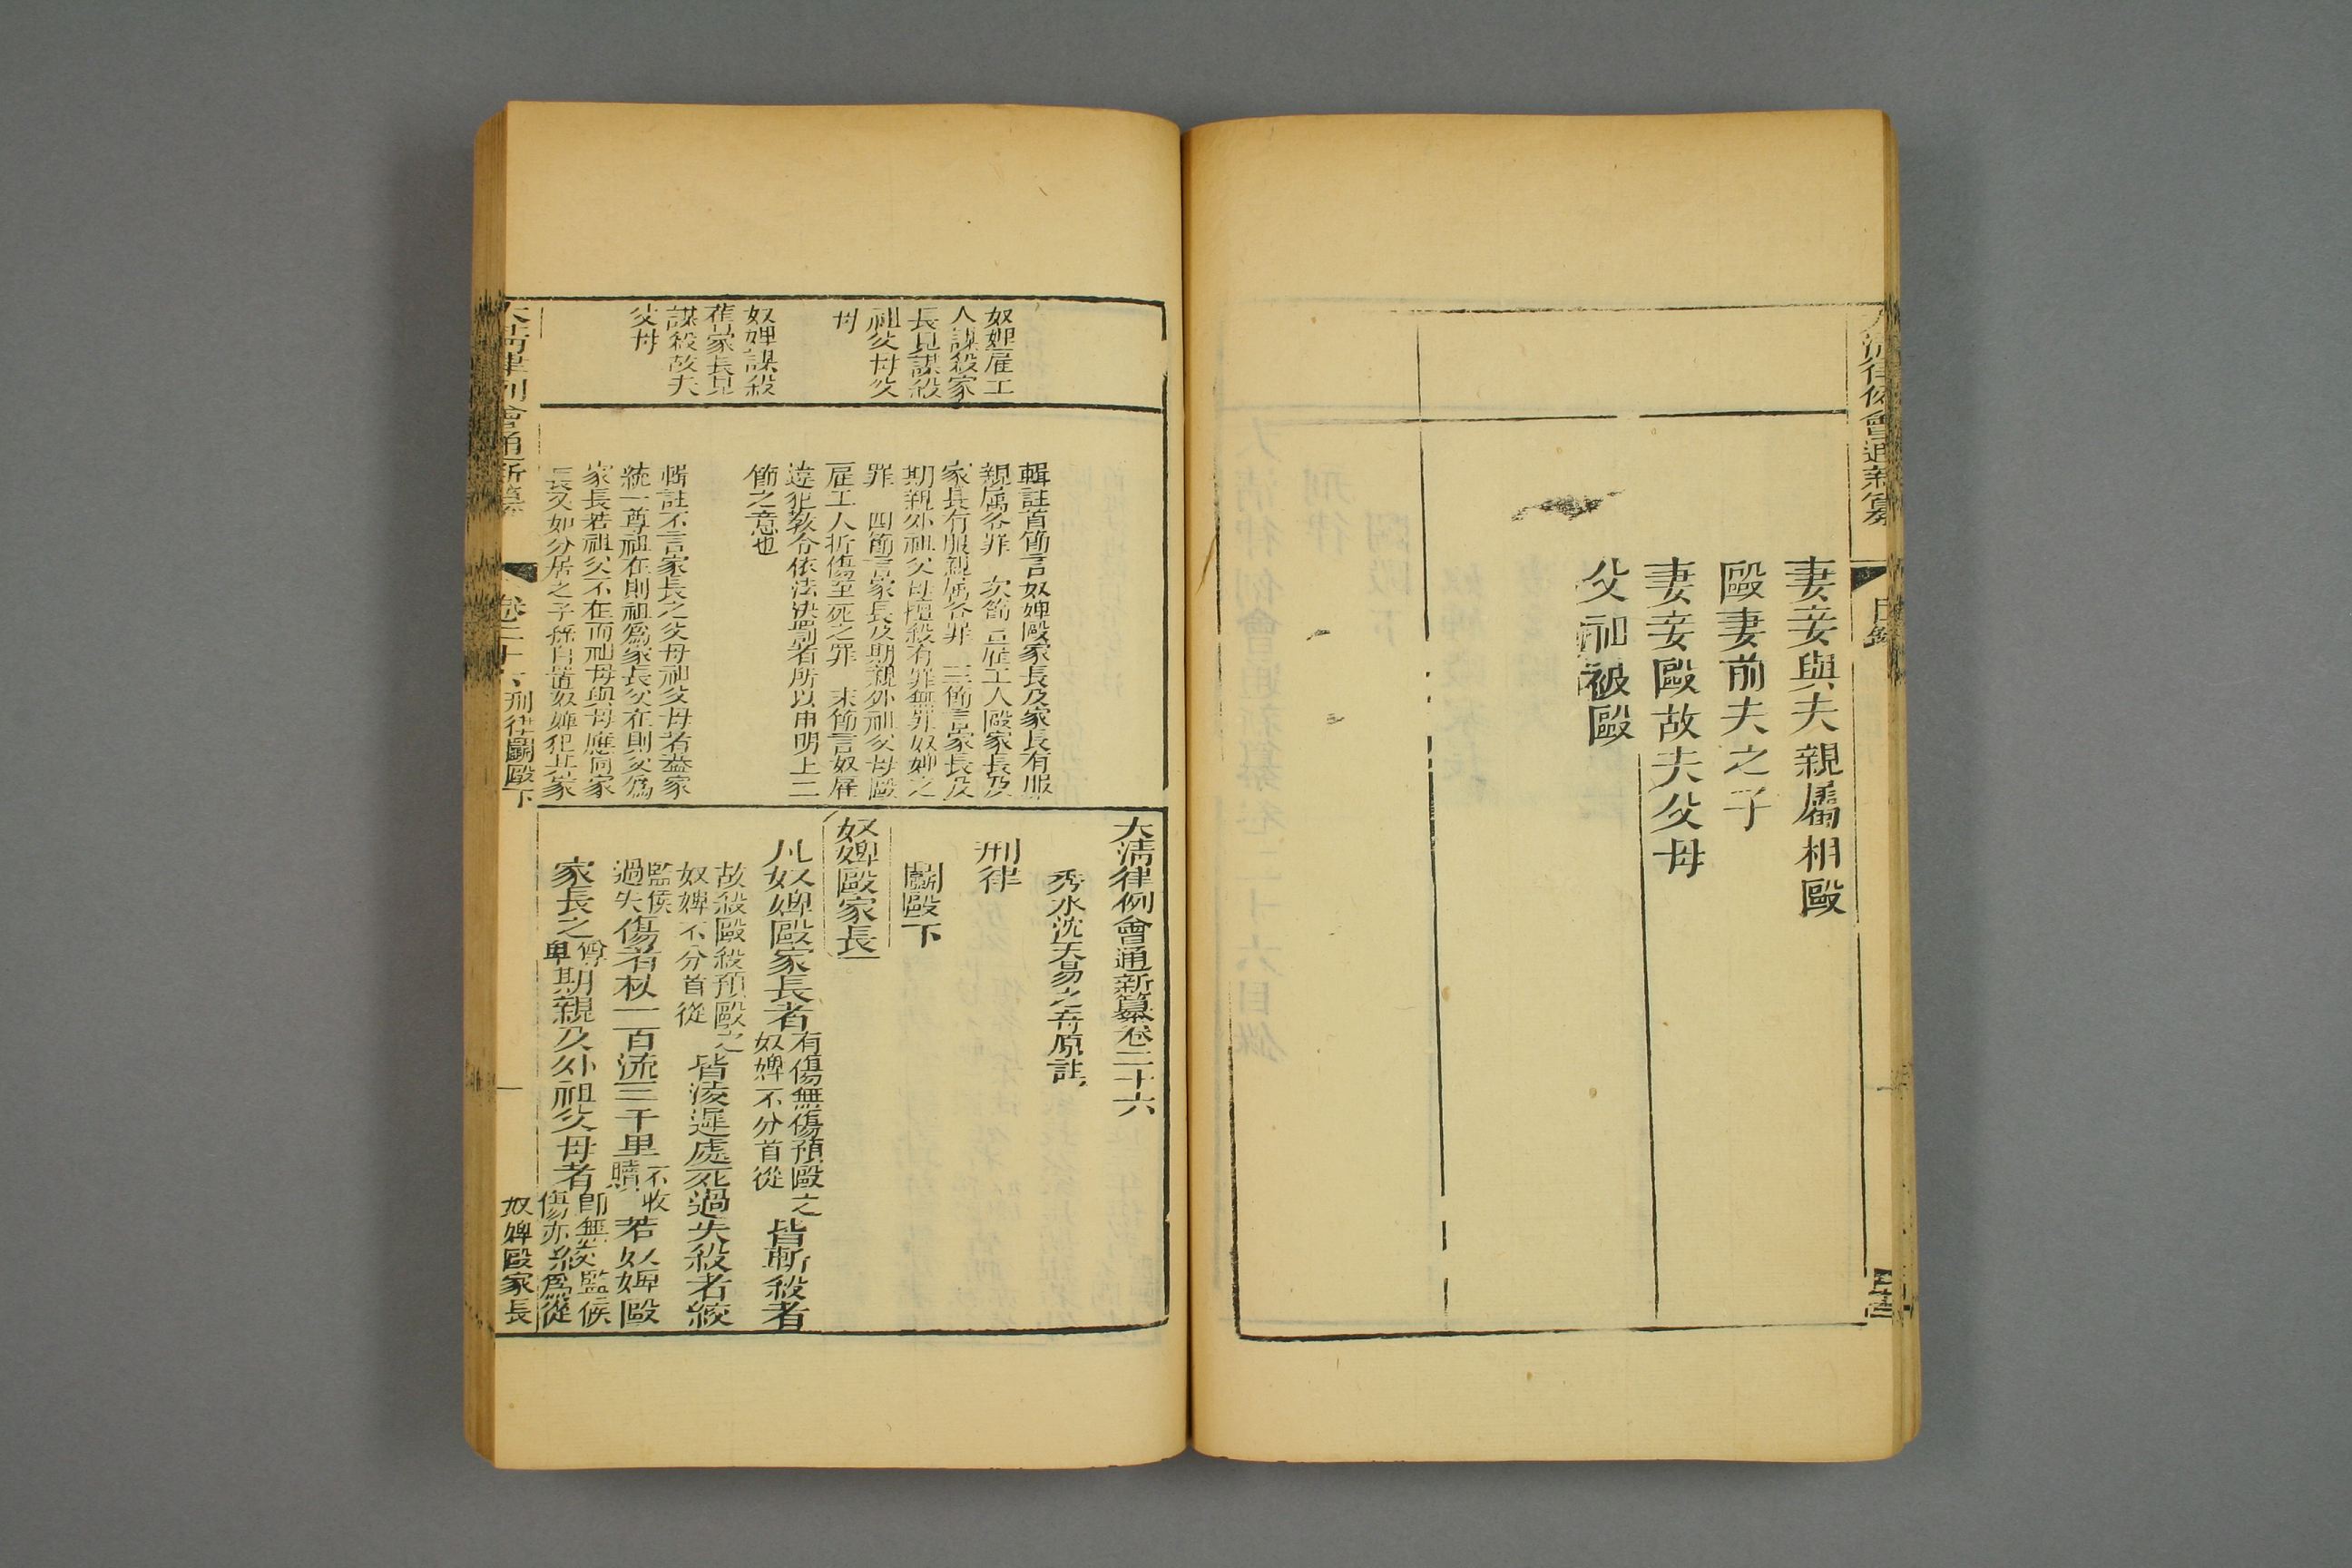 大清律例會通新纂
目錄
妻妾與夫親屬相毆
毆妻前夫之子
妻妾毆故夫父母
父祖被毆
奴婢雇工
人謀殺家
長見謀殺
祖父母父
母
奴婢謀殺
舊家長見
謀殺故夫
父母
輯註首節言奴婢毆家長及家長有服
親属各罪 次節言雇工人毆家長及
家長有服親属各罪 三節言家長及
期親外祖父母擅殺有罪無罪奴婢之
罪 四節言家長及期親外祖父母毆
雇工人折傷至死之罪 末節言奴雇
違犯敎令依法決罰者所以申明上二
節之意也
輯註不言家長之父母祖父母者葢家
統一尊祖在則祖為家長父在則父為
家長若祖父不在而祖母與母應同家
長又如分居之子孫自置奴婢犯其家
大清律例會通新纂卷二十六
秀水沈天易之奇原註
刑律
鬭毆下
奴婢毆家長
凡奴婢毆家長者有傷無傷預毆之
奴婢不分首從皆斬殺者
故殺毆殺預毆之
奴婢不分首從皆淩遲處死過失殺者絞
監候
過失傷者杖一百流三千里不收
贖若奴婢毆
家長之尊
卑期親及外祖父母者即無
傷亦絞監候
為從
大清律例會通新纂
卷二十六 刑律鬭毆下
一
奴婢毆家長